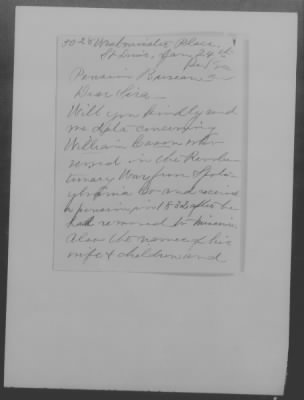 5028 Westminster Place,
St Louis, Jan, 24th
Pension Bureau
Dear Sirs
Will you kindly send
me data concerning
William Cason who
served in the Revolu
tionary War from Spots
ylvania Co and received
a pension in 1832 after he
had removed to Missouri.
Also the names of his
wife & children and